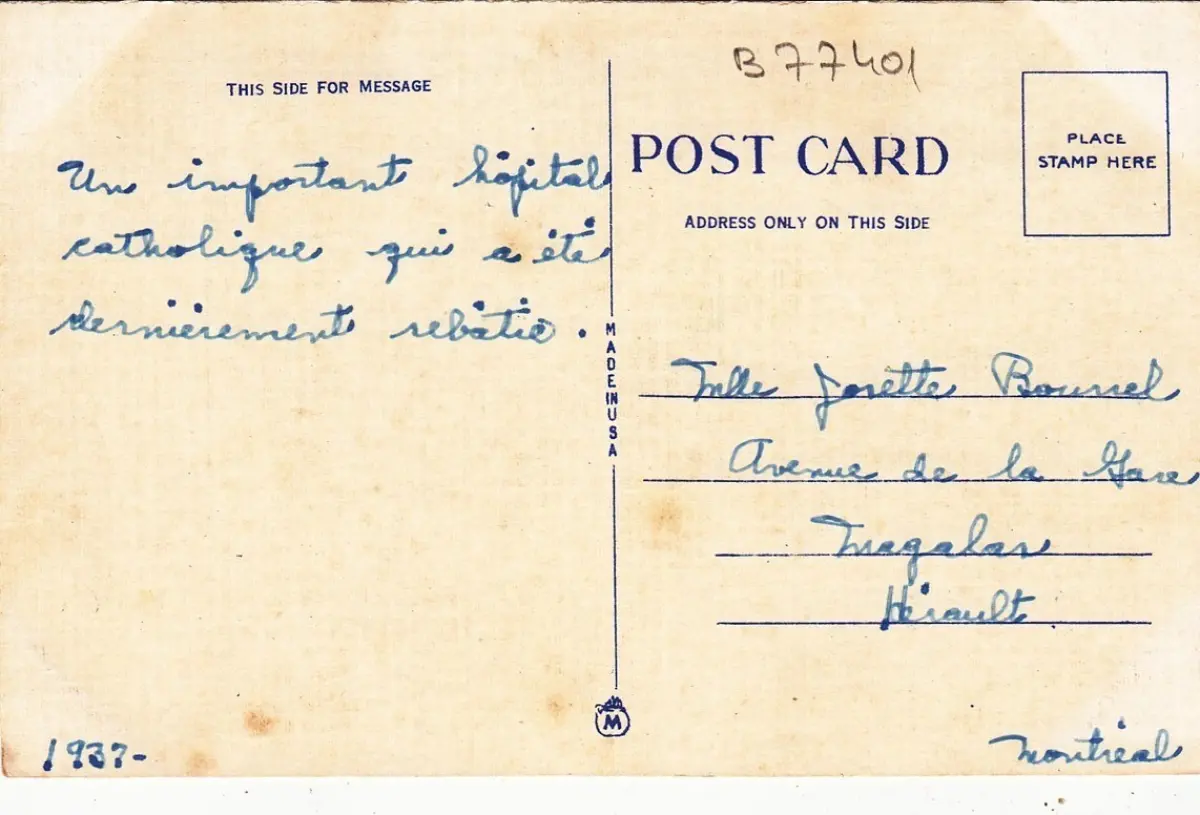 B77401
THIS SIDE FOR MESSAGE
POST CARD
PLACE
STAMP HERE
ADDRESS ONLY ON THIS SIDE
Un important hôpital
catholique qui a été
dernièrement rebâtie.
MADE IN USA
Mlle Josette Bourrel
Avenue de la Gare
Magalas
Hérault
M
1937-
Montréal